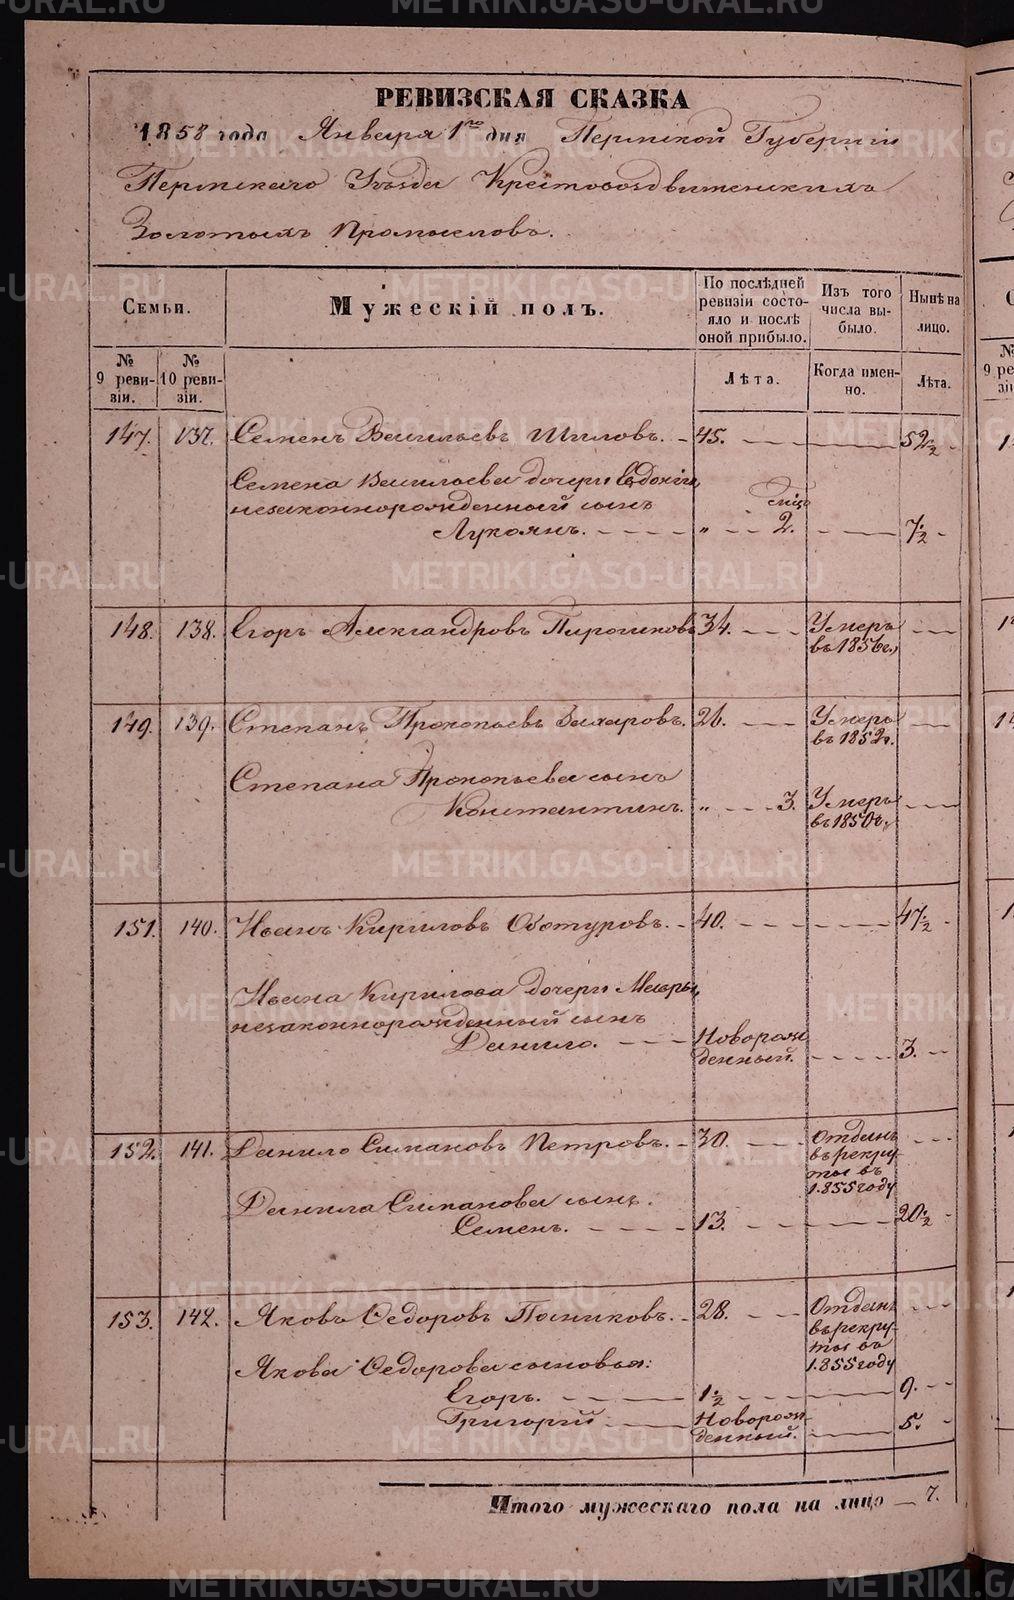 РЕВИЗСКАЯ СКАЗКА
1858 года Января 1го дня Пермской Губернiи
Пермскаго Уѣзда Крестовоздвиженскихъ
Золотыхъ Промысловъ.
Семьи.
Мужескiй полъ.
По послѣдней ревизiи состояло и послѣ оной прибыло.
Изъ того числа выбыло.
Нынѣ на лицо.
№ 9 ревизiи.
№ 10 ревизiи.
Лѣта.
Когда именно.
Лѣта.
147. 137. Семенъ Васильевъ Шиловъ. 45. 52½
Семена Васильева дочери Евдокiи
незаконнорожденный сынъ
Лукоянъ. " 2. 7½
148. 138. Егоръ Александровъ Пирожковъ 34. Умеръ
въ 1856г.
149. 139. Степанъ Прокопьевъ Захаровъ. 26. Умеръ
въ 1852г.
Степана Прокопьева сынъ
Константинъ. " 3. Умеръ
въ 1850г.
151. 140. Иванъ Кириловъ Обатуровъ. 40. 47½
Ивана Кирилова дочери Мавры
незаконнорожденный сынъ
Данило. Новорож
денный. 3.
152. 141. Данило Симановъ Петровъ. 30. Отданъ
въ рекру-
ты въ
1855 году
Данила Симанова сынъ.
Семенъ. 13. 20½
153. 142. Яковъ Ѳедоровъ Посниковъ. 28. Отданъ
въ рекру-
ты въ
1855 году
Якова Ѳедорова сыновья:
Егоръ. 1½ 9.
Григорiй Новорож
денный. 5.
Итого мужескаго пола на лицо 7.
METRIKI.GASO-URAL.RU